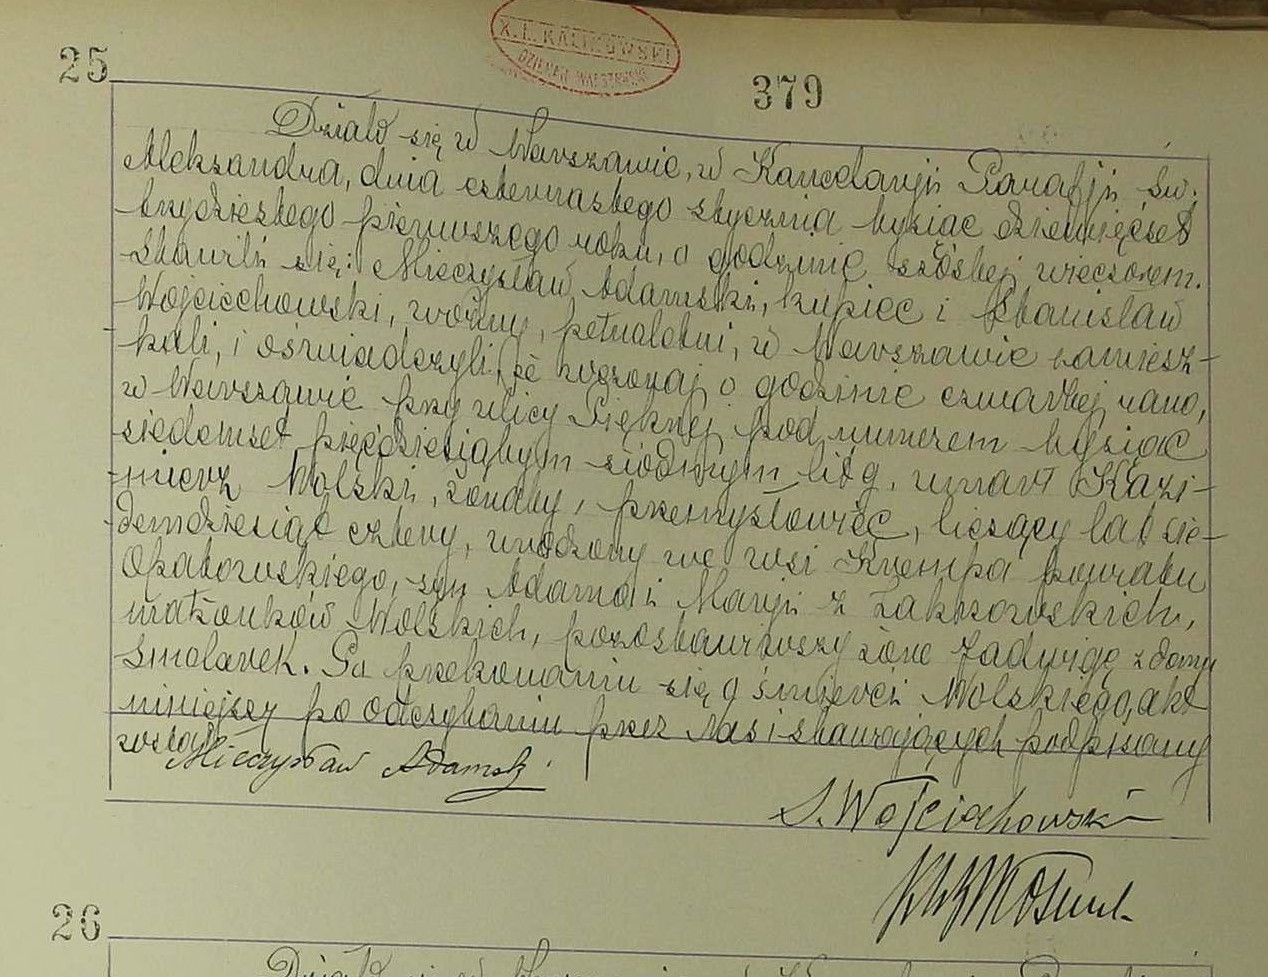 X. L. KALINOWSKI
DZIEKAN WARSZAWSKI
25
379
Działo się w Warszawie, w Kancelaryji Parafji św.
Aleksandra, dnia czternastego stycznia tysiąc dziewięćset
trzydziestego pierwszego roku, o godzinie szóstej wieczorem.
Stawili się: Mieczysław Adamski, kupiec i Stanisław
Wojciechowski, woźny, pełnoletni, w Warszawie zamiesz-
kali, i oświadczyli, że wczoraj o godzinie czwartej rano,
w Warszawie przy ulicy Pięknej pod numerem tysiąc
siedemset pięćdziesiątym siódmym lit g. umarł Kazi-
mierz Wolski, żonaty, przemysłowiec, liczący lat sie-
demdziesiąt cztery, urodzony we wsi Krempa powiatu
Opatowskiego, syn Adama i Maryi z Zakrzowskich,
małżonków Wolskich, pozostawiwszy żonę Jadwigę z domu
Smolanek. Po przekonaniu się o śmierci Wolskiego, akt
niniejszy po odczytaniu przez Nas i stawających podpisany
został.
Mieczysław Adamski
S. Wojciechowski
26
Działo się w Warszawie, w Kancelaryji Parafji